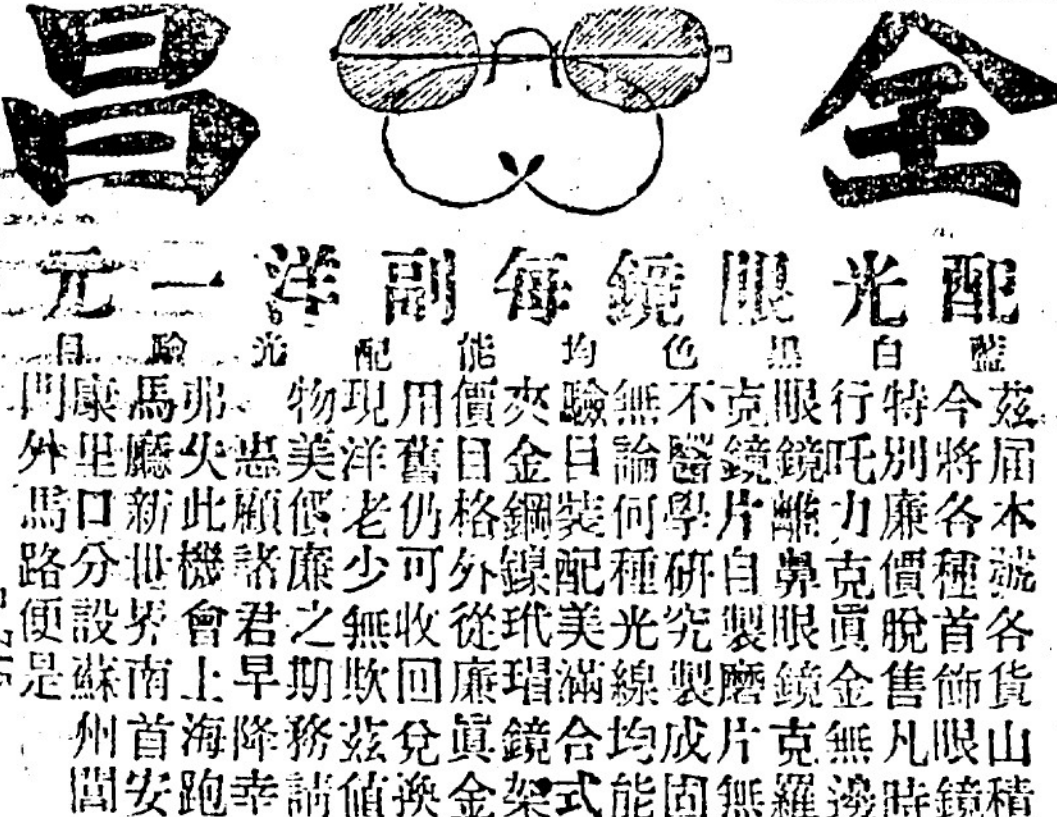 全昌
配光眼鏡每副洋一元
藍白黑色均能配光驗目
茲届本號各貨山積
今將各種首飾眼鏡
特別廉價脫售凡時
行吒力克眞金無邊
眼鏡離鼻眼鏡克羅
克鏡片自製磨片無
不醫學研究製成固
無論何種光線均能
驗目裝配美滿合式
夾金鋼鎳玳瑁鏡架
價目格外從廉眞金
用舊仍可收回兌換
現洋老少無欺茲值
物美價廉之期務請
惠顧諸君早降幸
弗失此機會上海跑
馬廳新世界南首安
康里口分設蘇州閶
門外馬路便是